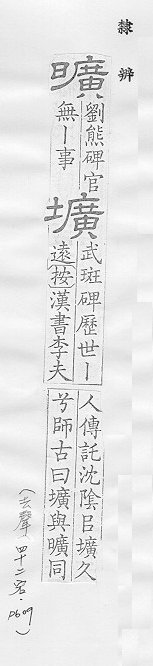 隸辨
曠
劉熊碑官
無丨事
壙
武班碑歷世丨
遠按漢書李夫
人傳託沈陰㠯壙久
兮師古曰壙與曠同
(去聲.四十二宕.P609)